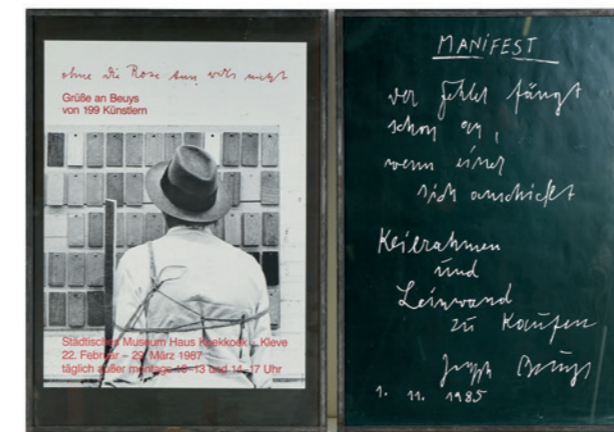 ohne die Rose tun wir's nicht
Grüße an Beuys
von 199 Künstlern
Städtisches Museum Haus Koekkoek – Kleve
22. Februar – 29. März 1987
täglich außer montags 10–13 und 14–17 Uhr
MANIFEST
der Fehler fängt
schon an,
wenn einer
sich anschickt
Keilrahmen
und
Leinwand
zu kaufen
Joseph Beuys
1. 11. 1985